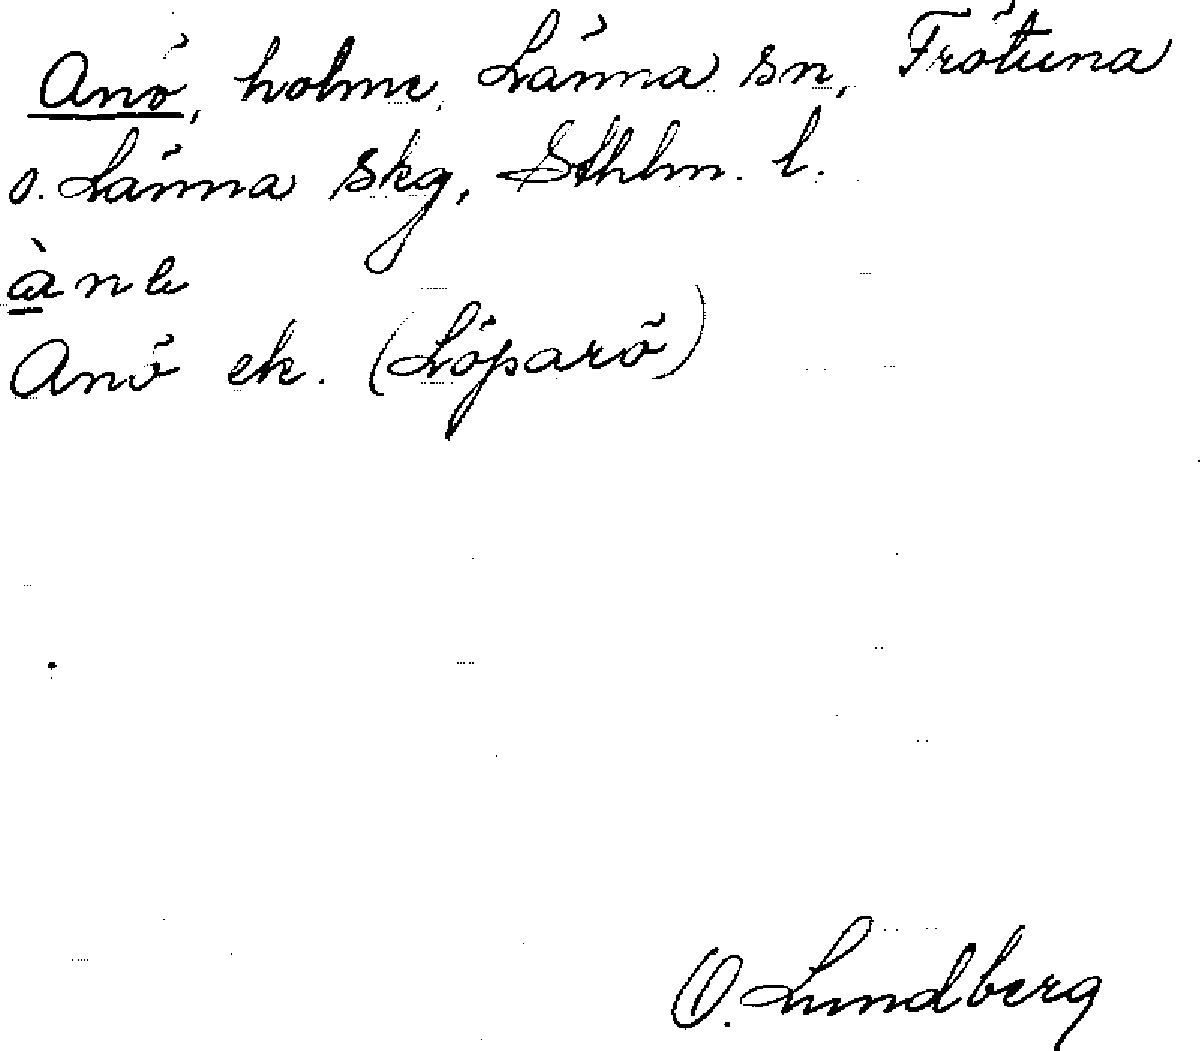 Anö, holme, Länna sn, Frötuna
o. Länna skg, Sthlm. l.
ànö
Anö ek. (Löparö)
O. Lundberg